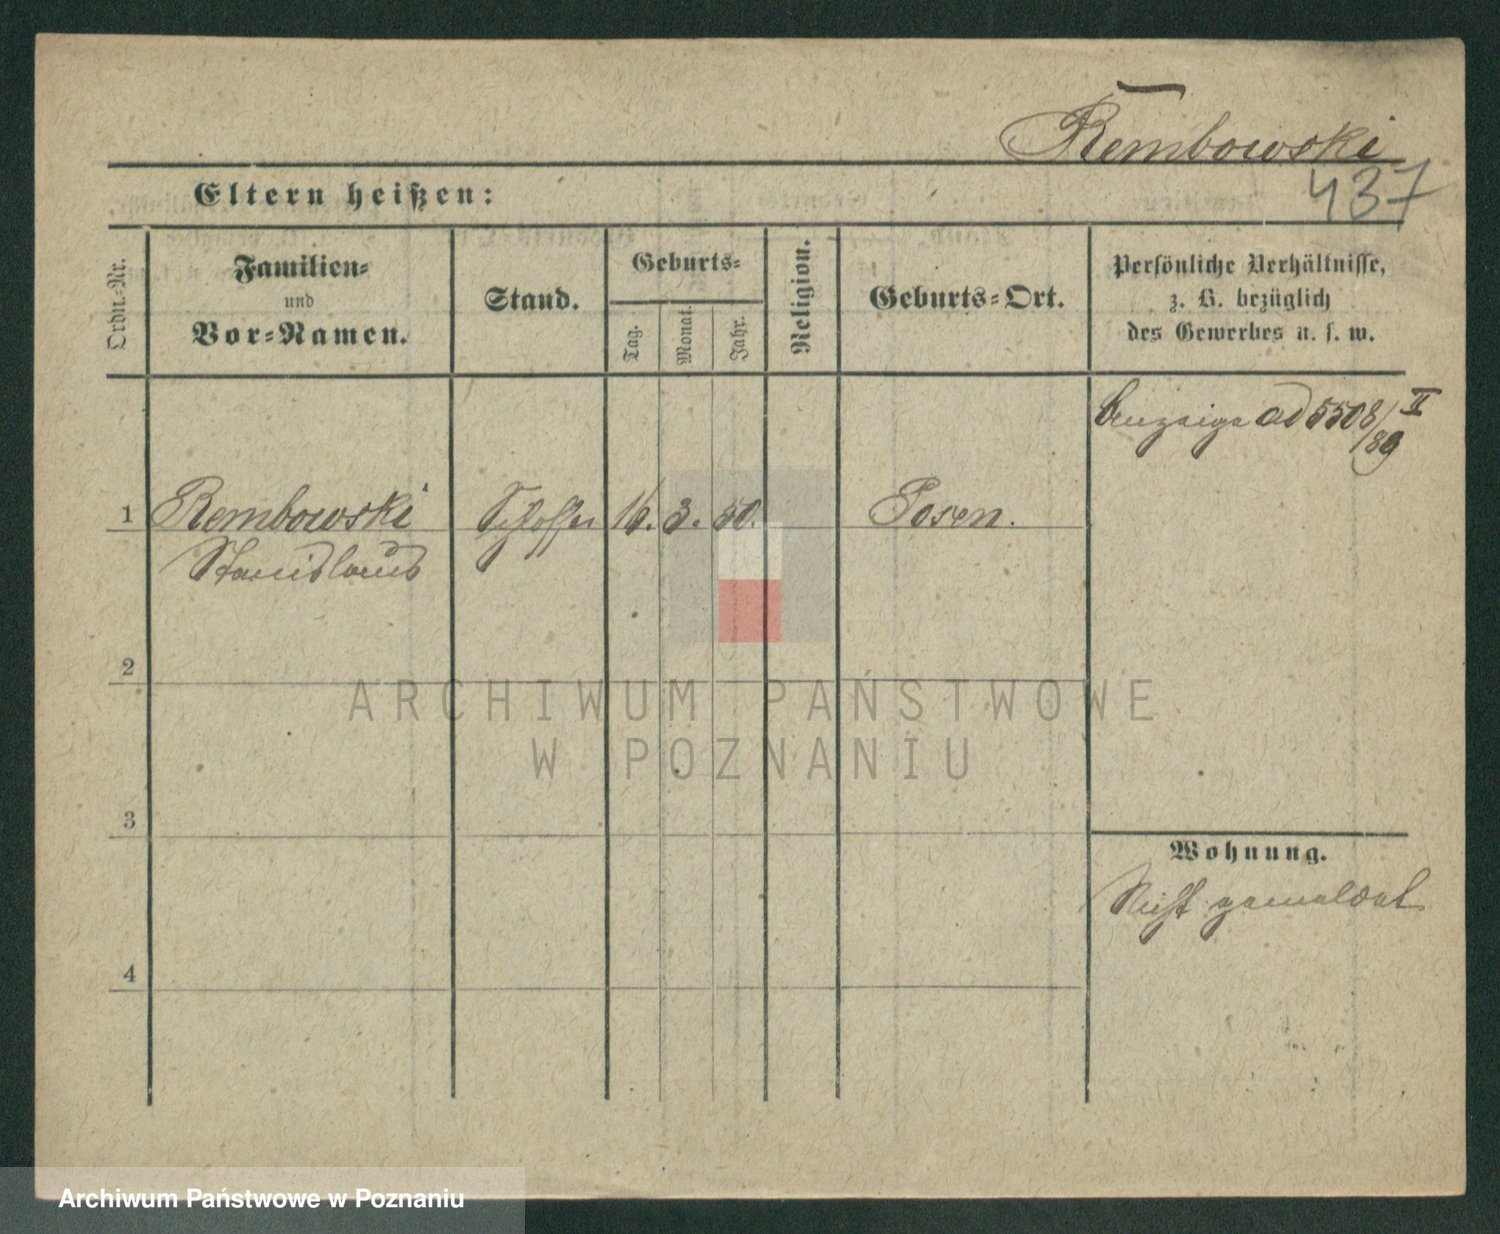 Rembowski
437
Eltern heißen:
Ordn.-Nr.
Familien-
und
Vor-Namen.
Stand.
Geburts-
Tag.
Monat.
Jahr.
Religion.
Geburts-Ort.
Persönliche Verhältnisse,
z. B. bezüglich
des Gewerbes u. s. w.
ad 5508/89 II
1 Rembowski Schlosser 16. 3. 50. Posen.
Stanislaus
2
3
4
Wohnung.
Nicht gemeldet
ARCHIWUM PAŃSTWOWE
W POZNANIU
Archiwum Państwowe w Poznaniu